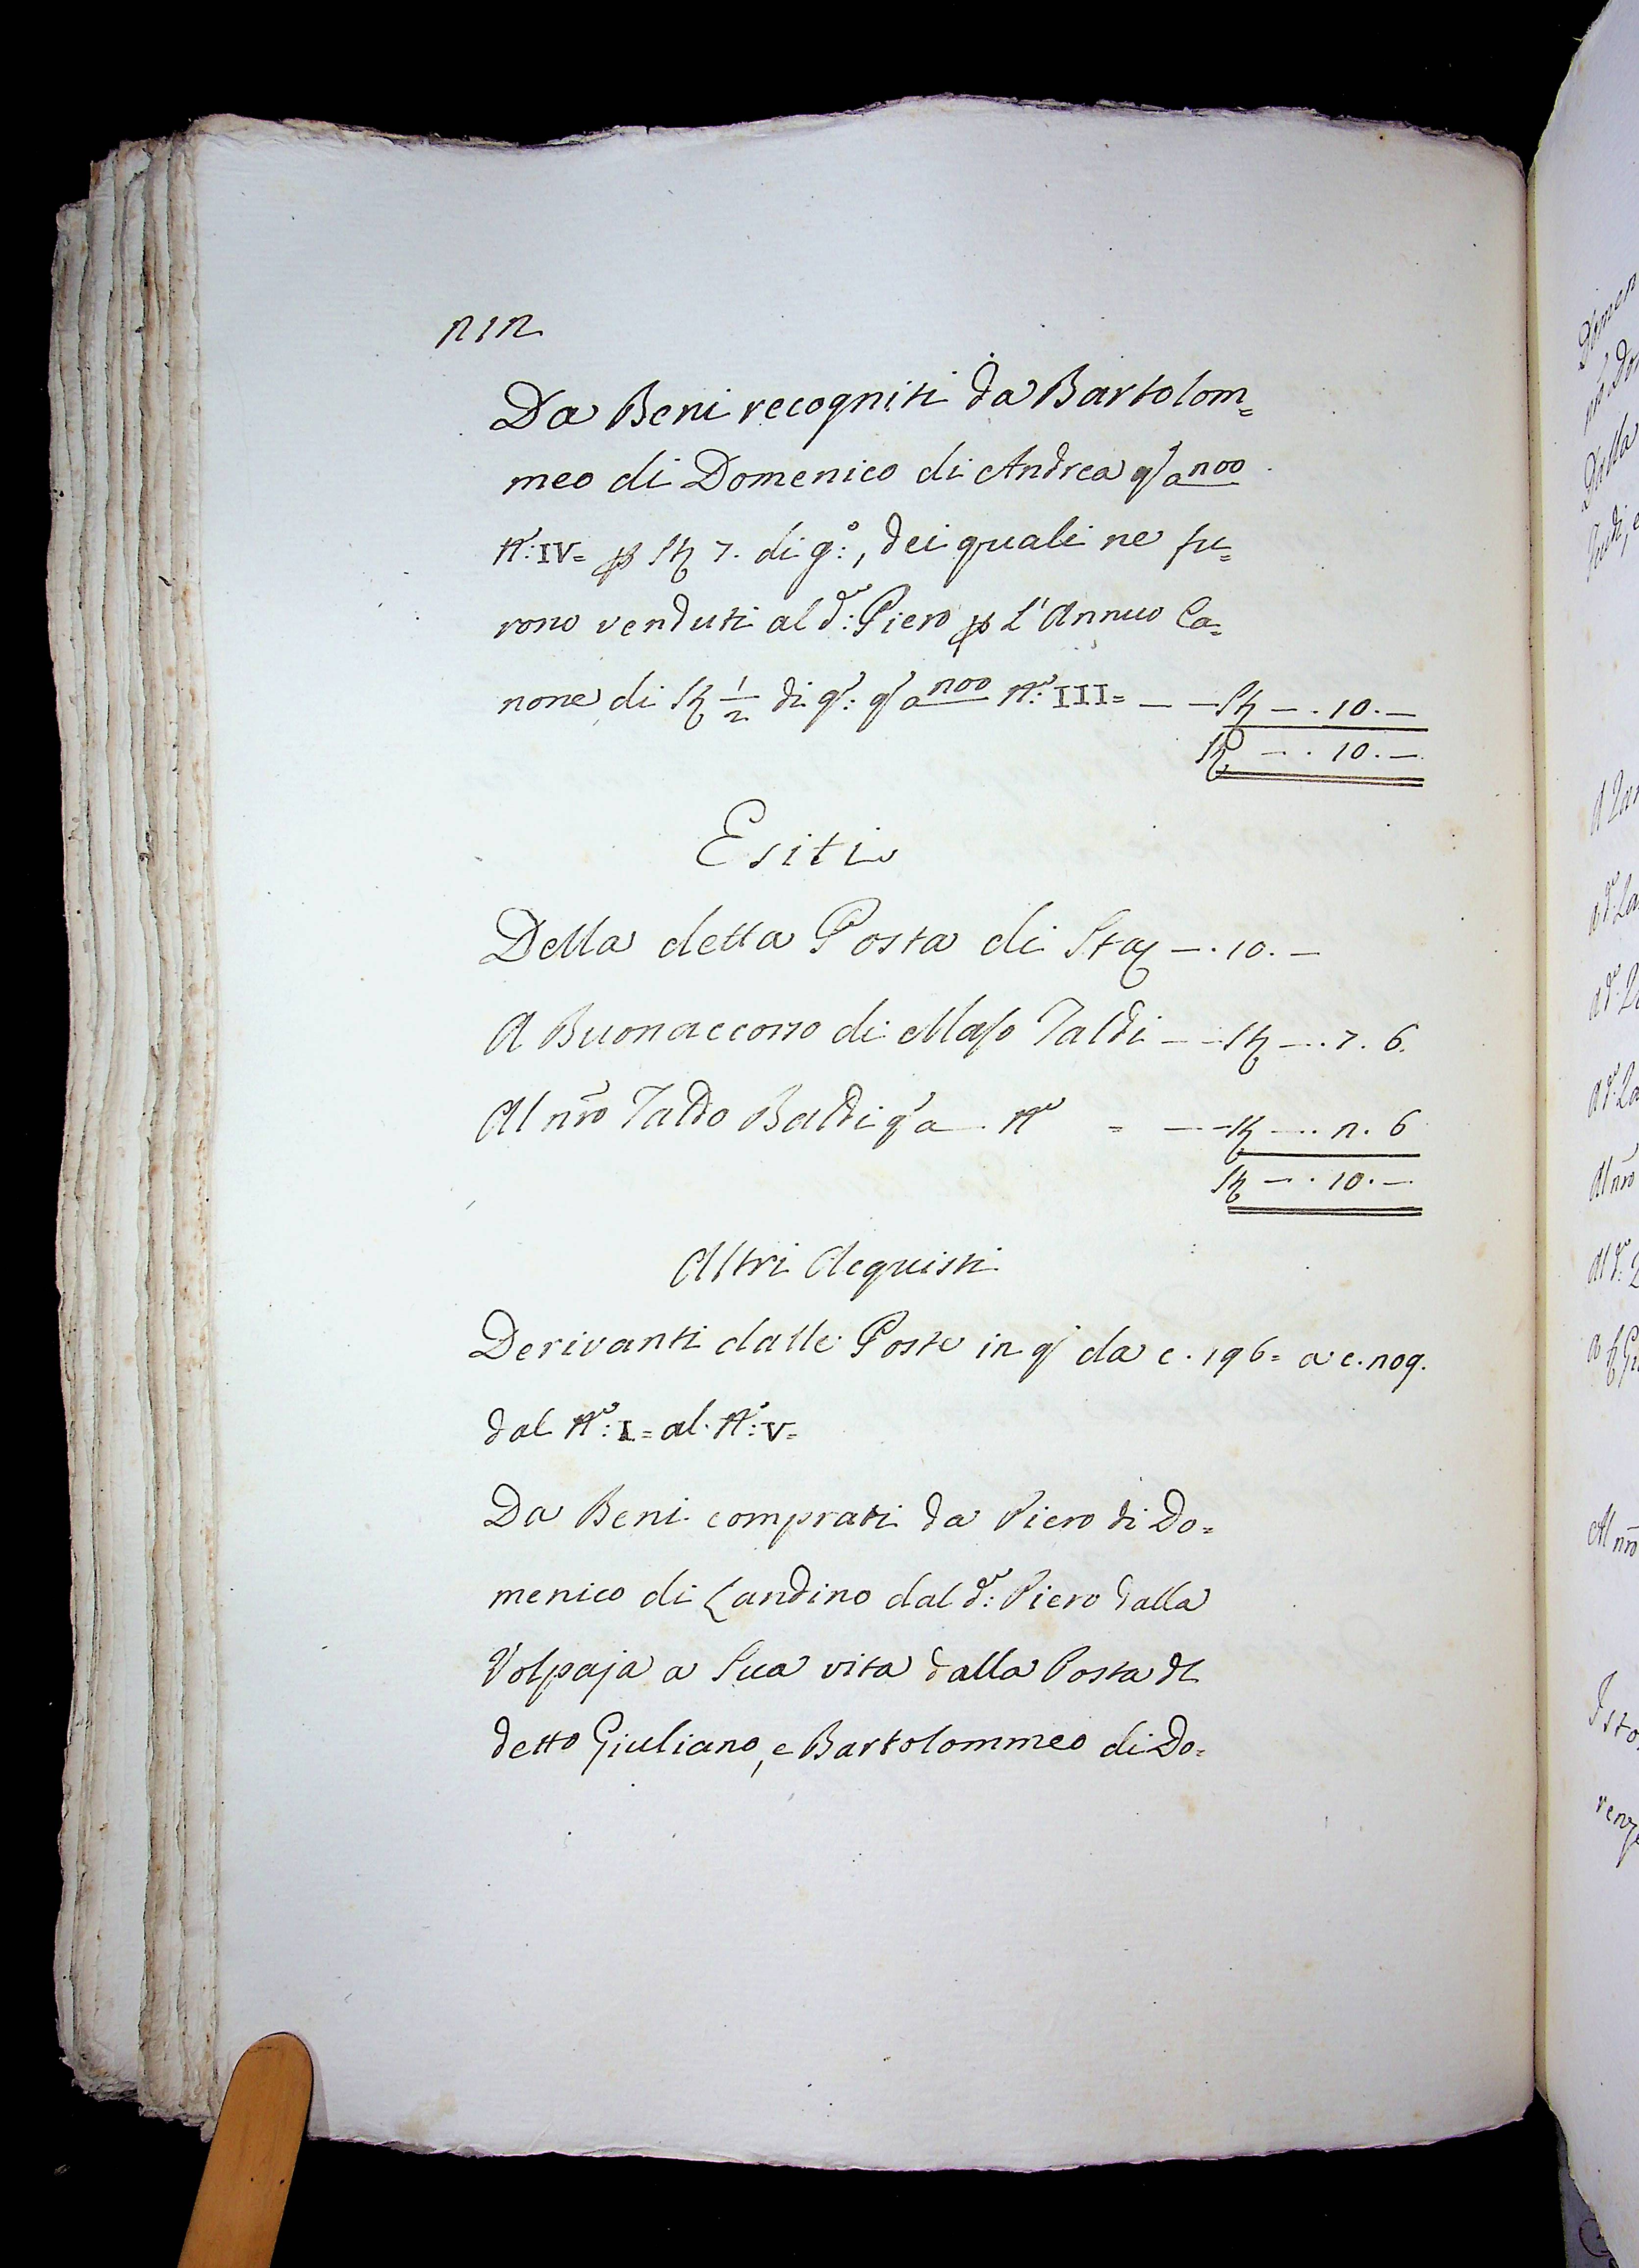 212
Da Beni recogniti da Bartolom=
meo di Domenico di Andrea q. a 200
N.º IV= p St 7. di g.º, dei quali ne fu=
rono venduti al d.º Piero p L'Annuo Ca=
none di St 1/2 di g.º q. a 200 N.º III= — — St — . 10. —
St — . 10. —
Esiti
Della detta Posta di Sta — . 10. —
A Buonaccorso di Maso Taldi — — St — . 7. 6.
Al nro Taldo Baldi q. a — N.º = — — St — . 2. 6
St — . 10. —
Altri Acquisti
Derivanti dalle Poste in q. da c. 196= a c. 209.
dal N.º I= al N.º V=
Da Beni comprati da Piero di Do=
menico di Landino dal d.º Piero dalla
Volpaja a Sua vita dalla Posta dl
detto Giuliano, e Bartolommeo di Do=